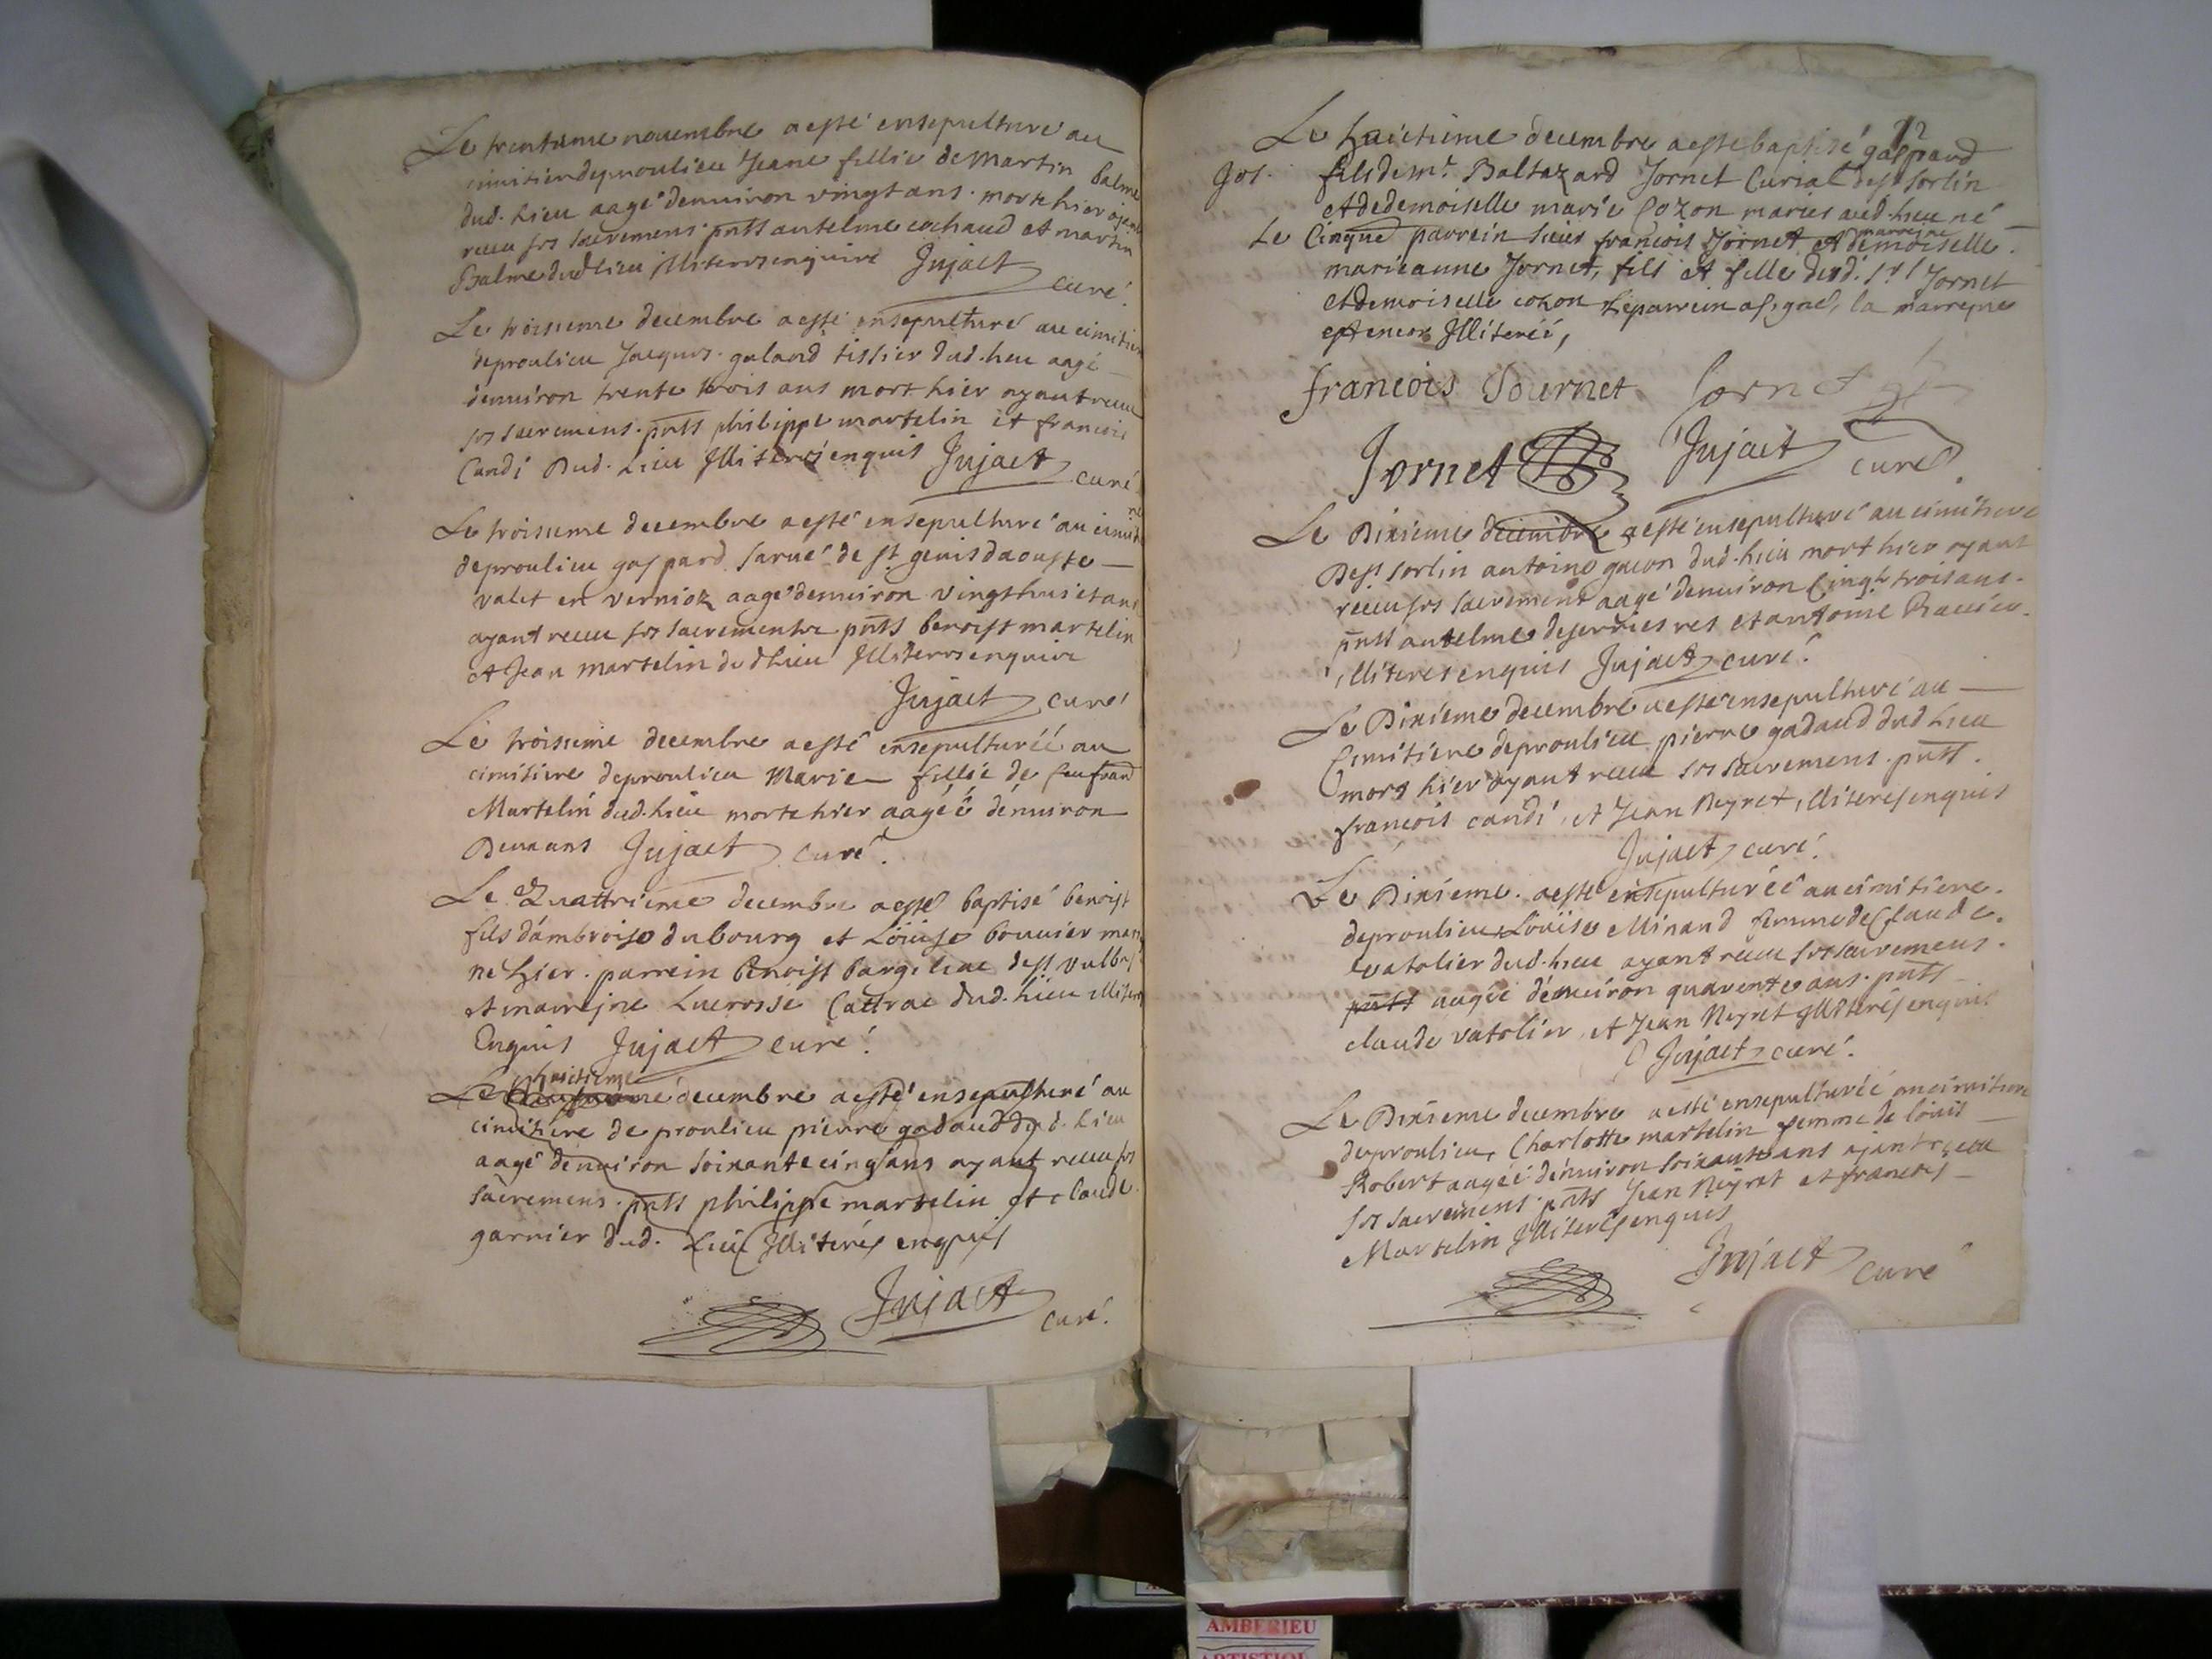 Le trentieme novembre a esté ensepulturé au
cimitier de proulieu Jeane fillie de Martin balme
dud. lieu aagé denviron vingt ans. morte hier
receu ses sacremens. pnts antelme cochaud et martin
Balme dud lieu illiteres enquire Jujact curé.
Le troisieme decembre a esté ensepulturé au cimitier
de proulieu Jacques galand tissier dud. lieu aagé
denviron trente trois ans mort hier ayant receu
ses sacremens. pnts philippe martelin et francois
Candi Dud. Lieu Illiterés enquis Jujact curé
Le troisieme decembre a esté ensepulturé au cimitie
de proulieu gaspard sarué de st. genis daouste
valet en vernioz aagé denviron vingt huict ans
ayant receu ses sacremens pnts benoist martelin
et Jean martelin dudlieu Illiteres enquire
Jujact curé
Le troisieme decembre a esté ensepulturéé au
cimitiere de proulieu Marie fillié de feu
Martelin dud. lieu morte hier aagéé denviron
Deux ans Jujact curé.
Le Quattrieme decembre a esté baptisé benoist
fils dambroise dubourg et Louise bouvier
né hier. parrein Benoist de st. vulbas
et marrejne Lucresse Cattrac dud. lieu
Enquis Jujact curé.
huictieme
Le decembre a esté ensepulturé au
cimitiere de proulieu pierre gadaud dud. lieu
aagé denviron soixante cinq ans ayant receu ses
sacremens. pnts philippe martelin et claude
garnier dud. Lieu Illiterés enquis
Jujact
curé.
12
Le huictieme decembre a esté baptisé gaspard
gas. fils de mr. Baltazard Jornet Curial de st sorlin
et de demoiselle marie Cozon mariés aud lieu né
marreine
Le Cinque parrein sieur francois Jornet et demoiselle
marieanne Jornet, fils et fille dud. sr Jornet
et demoiselle cozon le parrein a signé, la marreyne
est encor Illiteréé,
francois Journet Jornet
Jornet Jujact curé
Le Dixieme decembre a esté ensepulturé au cimitiere
De st sorlin antoine gacon dud. lieu mort hier ayant
receu ses sacrement aagé denviron Cinqt trois ans.
pnts antelme deserrieres et antoine
illiteres enquis Jujact curé.
Le Dixieme decembre a esté ensepulturé au
Cimitiere de proulieu pierre gadaud dud lieu
mort hier ayant receu ses sacremens. pnts.
francois candi, et Jean Neyret, illiteres enquis
Jujact curé.
Le Dixieme. a esté ensepulturéé au cimitiere.
de proulieu Louise Minand femme de Claude.
vatolier dud. lieu ayant receu ses sacremens.
pnts aagéé denviron quarente ans. pnts
claude vatolier, et Jean Neyret Illiterés enquis
Jujact curé.
Le Dixieme decembre a esté ensepulturéé au cimitiere
de proulieu, Charlotte martelin femme de louis
Robert aagéé denviron soixante ans ajant receu
ses sacremens pnts Jean Neyret et francois
Martelin Illiterés enquis
Jujact curé
AMBERIEU